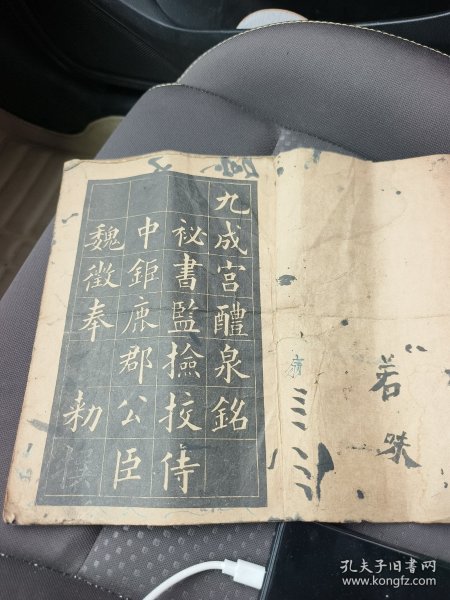 九成宫醴泉銘
祕書監撿挍侍
中鉅鹿郡公臣
魏徵奉 勑
若
孔夫子旧书网
www.kongfz.com